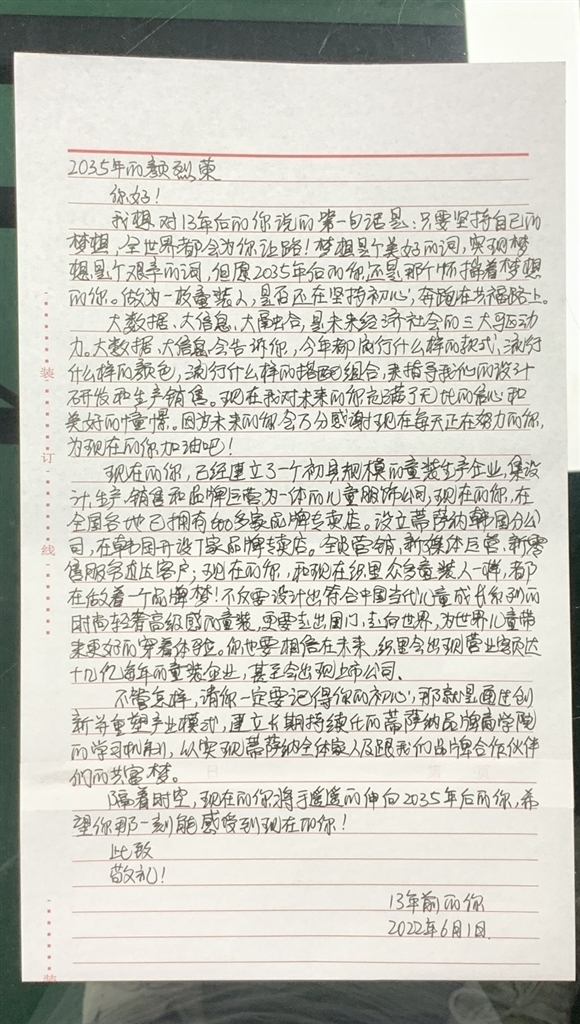 2035年的颜烈荣
你好！
我想对13年后的你说的第一句话是：只要坚持自己的
梦想，全世界都会为你让路！梦想是个美好的词，实现梦
想是个艰辛的词，但愿2035年后的你还是那个怀揣着梦想
的你。做为一枚童装人，是否还在坚持初心，奔跑在共福路上。
大数据、大信息、大融合，是未来经济社会的三大驱动
力。大数据、大信息会告诉你，今年都流行什么样的款式、流行
什么样的颜色，流行什么样的搭配组合，来指导我们的设计
研发和生产销售。现在我对未来的你充满了无比的信心和
美好的憧憬。因为未来的你会万分感谢现在每天正在努力的你，
为现在的你加油吧！
现在的你，已经建立了一个初具规模的童装生产企业，集设
计、生产、销售和品牌运营为一体的儿童服饰公司，现在的你，在
全国各地已拥有600多家品牌专卖店。设立蒂萨纳韩国分公
司，在韩国开设7家品牌专卖店。全域营销，新媒体运营，新零
售服务直达客户；现在的你，和现在织里众多童装人一样，都
在做着一个品牌梦！不仅要设计出符合中国当代儿童成长系列的
时尚轻奢高级感的童装，更要走出国门，走向世界，为世界儿童带
来更好的穿着体验。你也要相信在未来，织里会出现营业额达
十几亿每年的童装企业，甚至会出现上市公司。
不管怎样，请你一定要记得你的初心，那就是通过创
新并重塑产业模式，建立长期持续化的蒂萨纳品牌商学院
的学习机制，以实现蒂萨纳全体家人及跟我们品牌合作伙伴
们的共富梦。
隔着时空，现在的你将手遥遥的伸向2035年后的你，希
望你那一刻能感受到现在的你！
此致
敬礼！
13年前的你
2022年6月1日
装
订
线
装